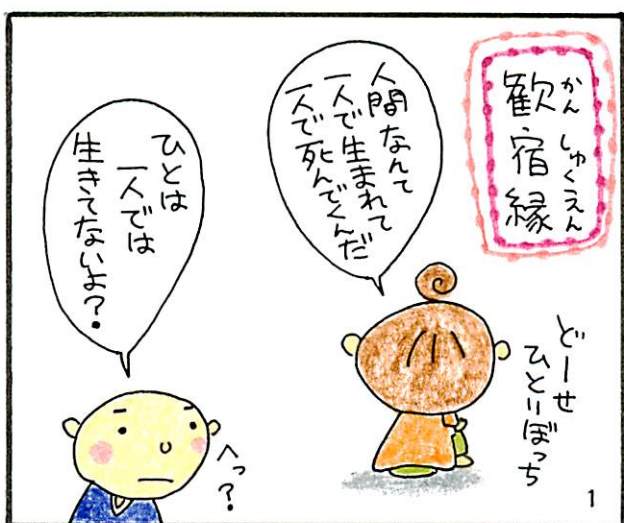 かんしゅくえん
歓宿縁
人間なんて
一人で生まれて
一人で死んでくんだ
どーせ
ひとりぼっち
ひとは
一人では
生きてないよ?
へっ?
1